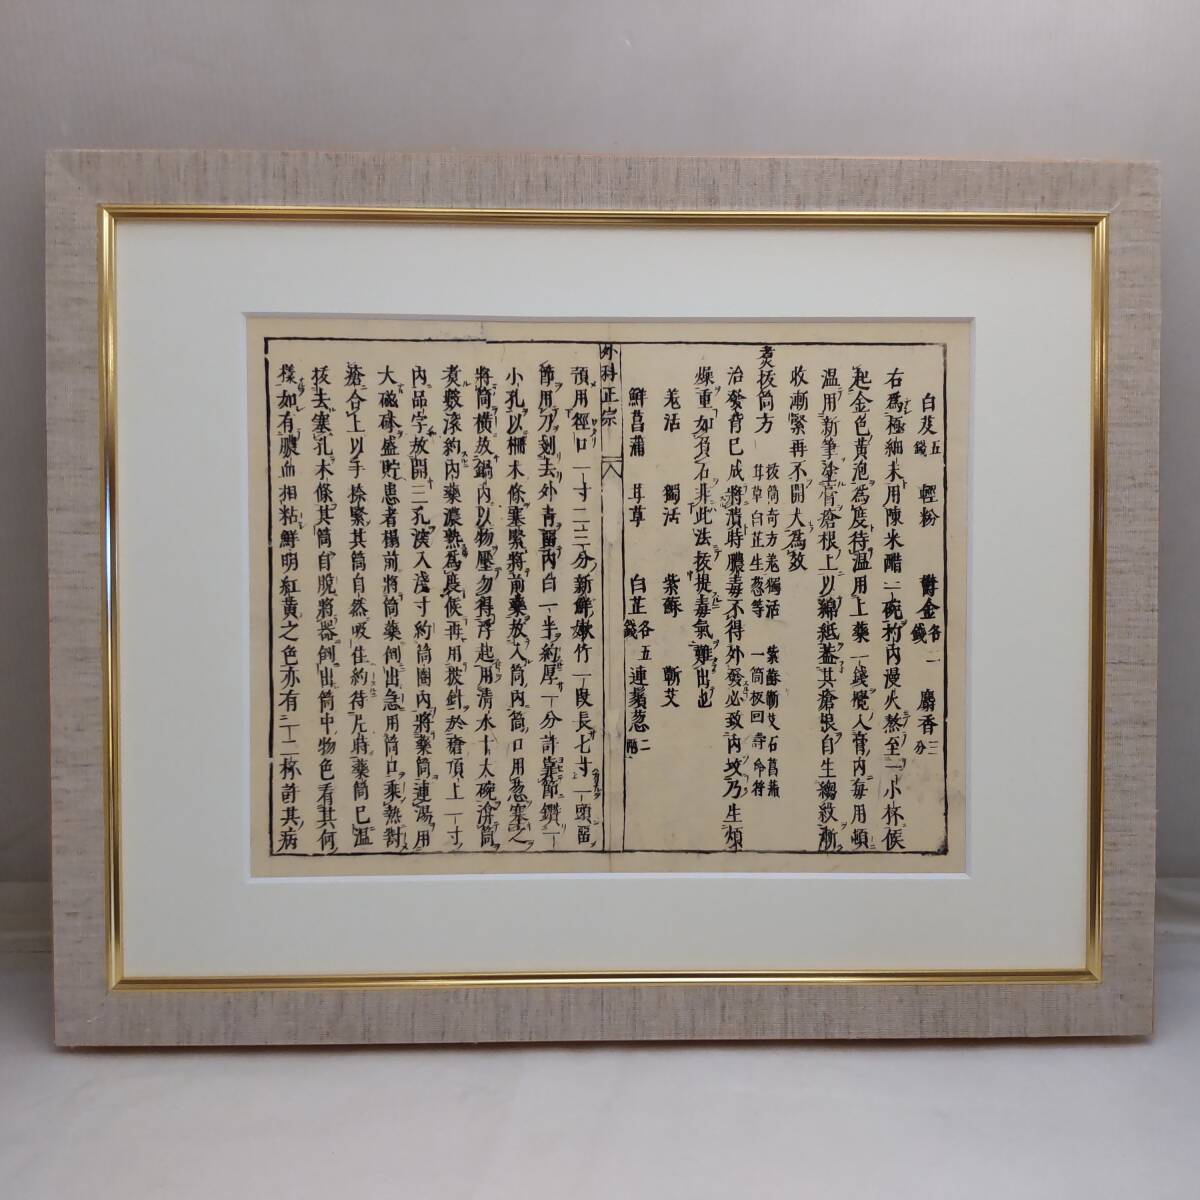 白芨五錢　輕粉　鬱金各一錢　麝香三分
右爲極細末用陳米醋二碗杓内漫火熬至一小杯候
起金色黃泡爲度待溫用上藥一錢攪入膏内每用頓
溫用新筆塗膏瘡根上以綿紙蓋其瘡根自生縐紋漸
收漸緊再不開大爲效
煮拔筒方　拔筒奇方羗獨活　紫蘇蘄艾石菖蒲　耳草白芷生葱等　一筒拔回壽命符
治發背已成將潰時膿毒不得外發必致内攻乃生煩
燥重如負石非此法拔提毒氣難出也
羗活　獨活　紫蘇　蘄艾
鮮菖蒲　耳草　白芷各五錢　連鬚葱二兩
外科正宗
預用徑口一寸二三分新鮮嫰竹一段長七寸一頭留
節用刀刻去外青留内白一半約厚一分許靠節鑽一
小孔以柵木條塞緊將前藥放入筒内筒口用葱塞之
將筒橫放鍋内以物壓勿得浮起用清水十大碗淹筒
煮數滾約内藥濃熟爲度候再用披針於瘡頂上一寸
内品字放開三孔深入淺寸約筒圈内將藥筒連湯用
大磁砵盛貯患者榻前將筒藥倒出急用筒口乘熱對
瘡合上以手捺緊其筒自然吸住約待片時藥筒已溫
拔去塞孔木條其筒自脫將器倒出筒中物色看其何
樣如有膿血相粘鮮明紅黃之色亦有一二杯許其病